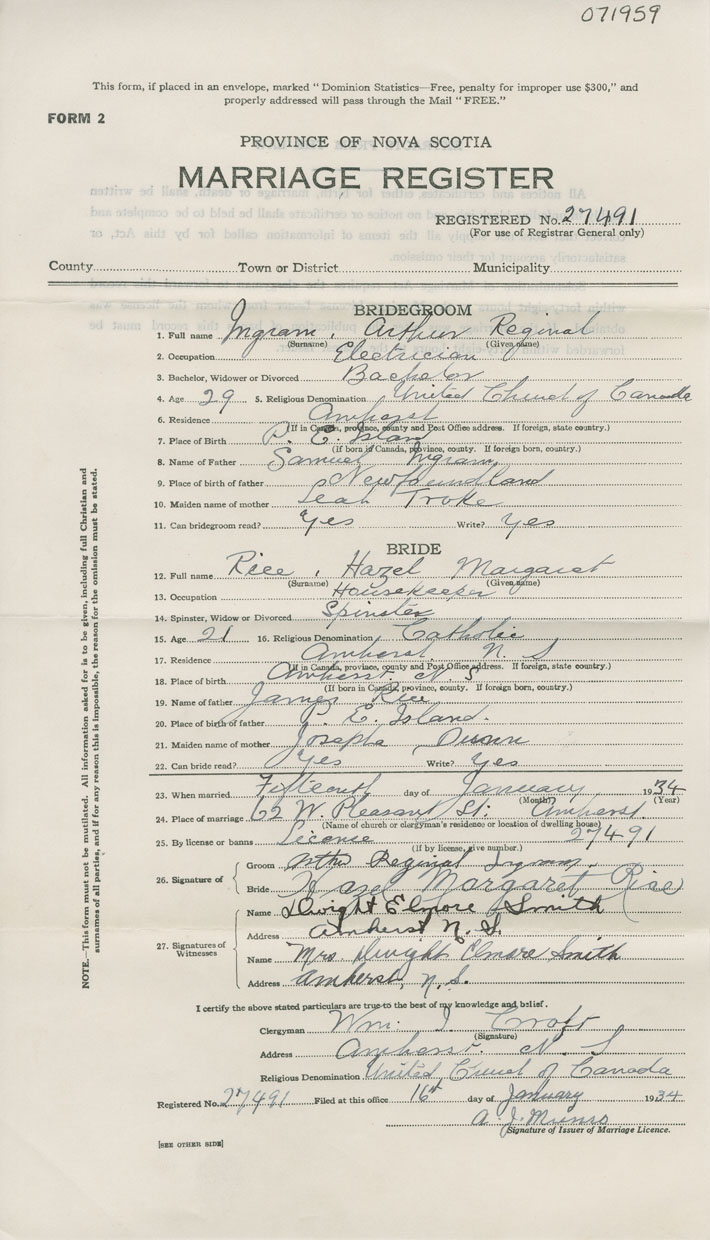 071959
This form, if placed in an envelope, marked "Dominion Statistics—Free, penalty for improper use $300," and
properly addressed will pass through the Mail "FREE."
FORM 2
PROVINCE OF NOVA SCOTIA
MARRIAGE REGISTER
REGISTERED No. 27491
(For use of Registrar General only)
County Town or District Municipality
BRIDEGROOM
1. Full name Ingram, Arthur Reginal
(Surname) (Given name)
2. Occupation Electrician
3. Bachelor, Widower or Divorced Bachelor
4. Age 29 5. Religious Denomination United Church of Canada
6. Residence Amherst
(If in Canada, province, county and Post Office address. If foreign, state country.)
7. Place of Birth P. E. Island
(If born in Canada, province, county. If foreign born, country.)
8. Name of Father Samuel Ingram
9. Place of birth of father Newfoundland
10. Maiden name of mother Leah Troke
11. Can bridegroom read? Yes Write? Yes
BRIDE
12. Full name Rice, Hazel Margaret
(Surname) (Given name)
13. Occupation Housekeeper
14. Spinster, Widow or Divorced Spinster
15. Age 21 16. Religious Denomination Catholic
17. Residence Amherst N. S
(If in Canada, province, county and Post Office address. If foreign, state country.)
18. Place of birth Amherst. N. S
(If born in Canada, province, county. If foreign born, country.)
19. Name of father James Rice
20. Place of birth of father P. E. Island.
21. Maiden name of mother Josepha
22. Can bride read? Yes Write? Yes
23. When married Fifteenth day of January 1934
(Month) (Year)
24. Place of marriage 62 W. Pleasant St. Amherst.
(Name of church or clergyman's residence or location of dwelling house)
25. By license or banns License 27491
(If by license, give number.)
26. Signature of
Groom Arthur Reginal Ingram.
Bride Hazel Margaret Rice
27. Signatures of Witnesses
Name Dwight Elmore Smith
Address Amherst N. S.
Name Mrs. Dwight Elmore Smith
Address Amherst, N.S.
I certify the above stated particulars are true to the best of my knowledge and belief.
Clergyman Wm. I. Croft
(Signature)
Address Amherst. N. S
Religious Denomination United Church of Canada
Registered No. 27491 Filed at this office 16th day of January 1934
A. J. Munro
(Signature of Issuer of Marriage Licence.
[SEE OTHER SIDE]
NOTE.—This form must not be mutilated. All information asked for is to be given, including full Christian and
surnames of all parties, and if for any reason this is impossible, the reason for the omission must be stated.